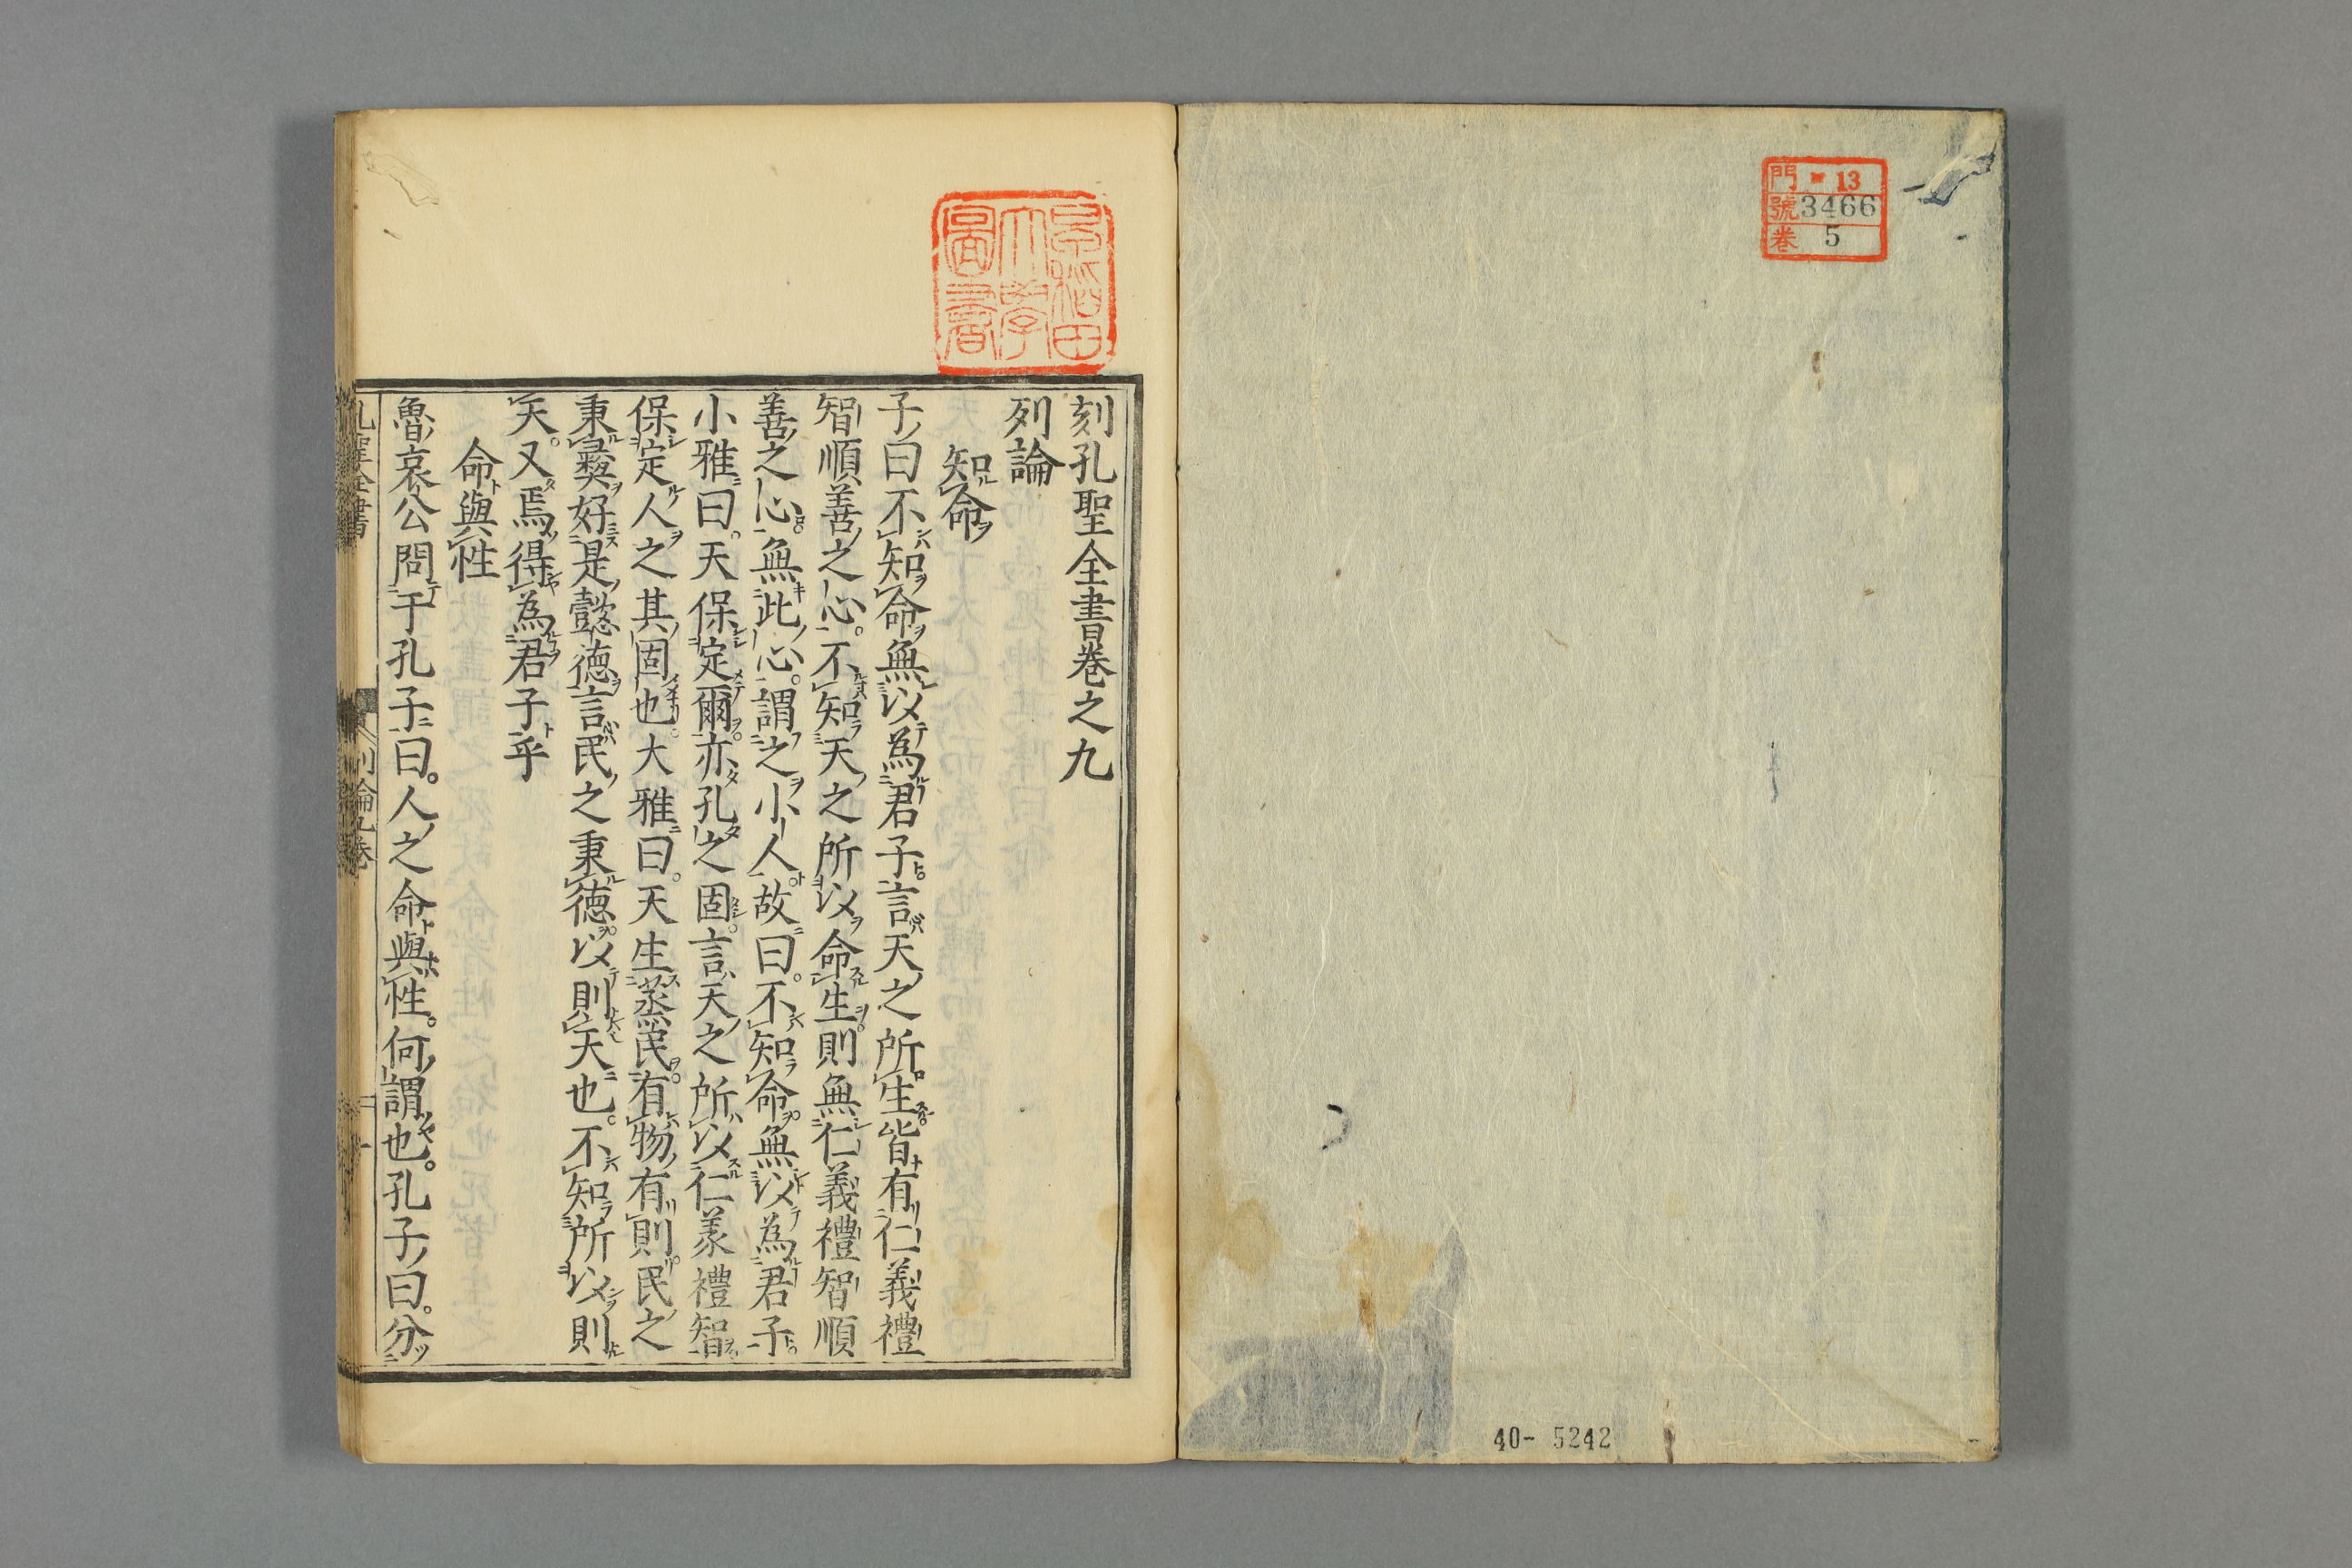 門 13
號 3466
卷 5
早稻田
大學
圖書
刻孔聖全書卷之九
列論
知命
子曰不知命無以為君子言天之所生皆有仁義禮
智順善之心。不知天之所以命生則無仁義禮智順
善之心。無此心。謂之小人故曰。不知命無以為君子
小雅曰。天保定爾亦孔之固。言天之所以仁義禮智
保定人之其固也大雅曰。天生蒸民。有物有則民之
秉彞好是懿德言民之秉德以則天也。不知所以則
天。又焉得為君子乎
命與性
魯哀公問于孔子曰。人之命與性。何謂也。孔子曰。分
孔聖全書 列論九卷 一
40- 5242